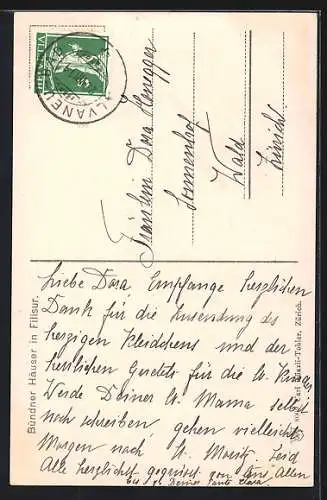 HELVETIA
ALVANEU
Fräulein Dora Honegger
Sonnenhof
Wald
Zürich
Liebe Dora Empfange herzlichen
Dank für die Zusendung des
herzigen Kleidchens und der
herrlichen Guetzli für die lb.
Werde Deiner lb. Mama selbst
noch schreiben gehen vielleicht
Morgen nach St. Moritz. Seid
Alle herzlichst gegrüsst von uns Allen
Deiner Tante
Bündner Häuser in Filisur.
Tobler, Zürich.